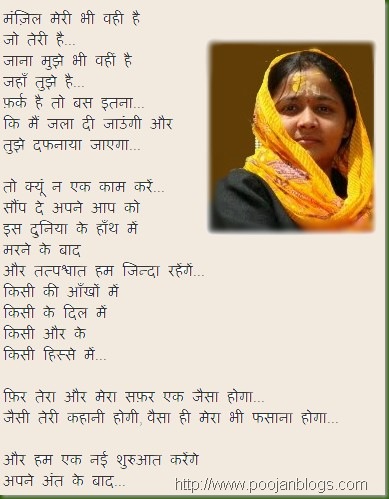 मंज़िल मेरी भी वही है
जो तेरी है...
जाना मुझे भी वहीं है
जहाँ तुझे है...
फ़र्क है तो बस इतना...
कि मैं जला दी जाउंगी और
तुझे दफनाया जाएगा...

तो क्यूं न एक काम करें...
सौंप दे अपने आप को
इस दुनिया के हाँथ में
मरने के बाद
और तत्पश्चात हम जिन्दा रहेंगें...
किसी की आँखों में
किसी के दिल में
किसी और के
किसी हिस्से में...

फ़िर तेरा और मेरा सफ़र एक जैसा होगा...
जैसी तेरी कहानी होगी, वैसा ही मेरा भी फसाना होगा...

और हम एक नई शुरुआत करेंगे
अपने अंत के बाद...
http://www.poojanblogs.com